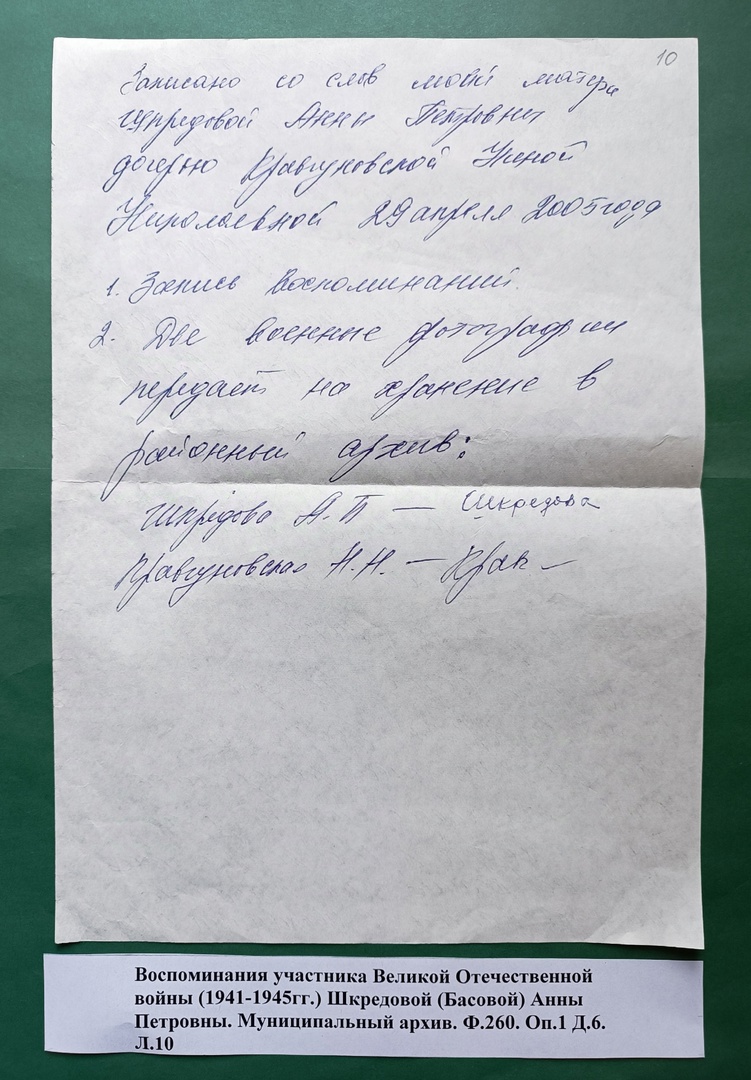 10
Записано со слов моей матери
Шкредовой Анны Петровны
дочерью Кравгуновской Ниной
Николаевной 29 апреля 2005 года
1. Запись воспоминаний.
2. Две военные фотографии
передаёт на хранение в
районный архив:
Шкредова А.П — Шкредова
Кравгуновская Н.Н. —
Воспоминания участника Великой Отечественной
войны (1941-1945гг.) Шкредовой (Басовой) Анны
Петровны. Муниципальный архив. Ф.260. Оп.1 Д.6.
Л.10